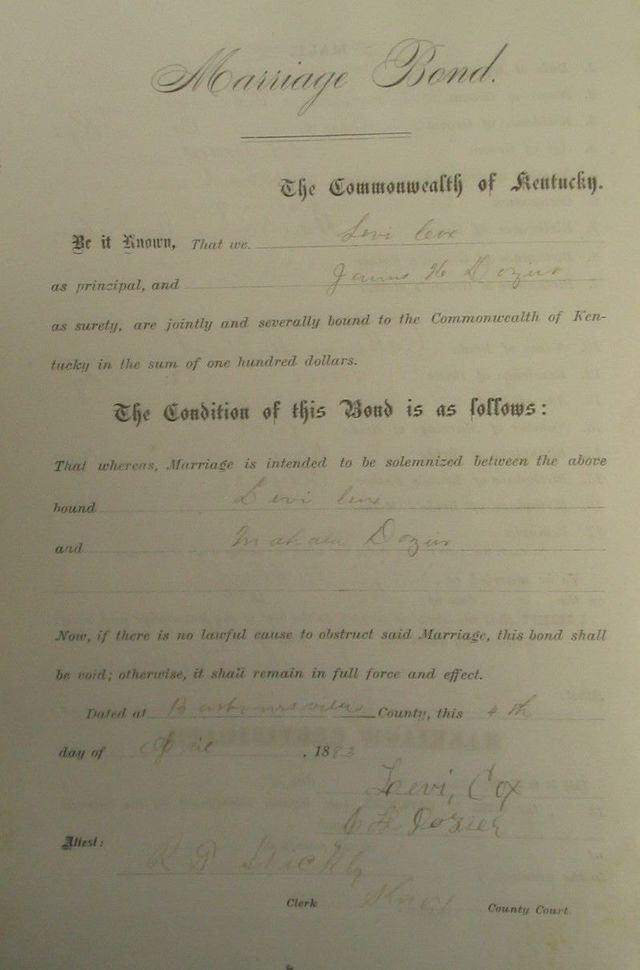 Marriage Bond.
The Commonwealth of Kentucky.
Be it Known, That we Levi Cox
as principal, and James H Dozier
as surety, are jointly and severally bound to the Commonwealth of Ken-
tucky in the sum of one hundred dollars.
The Condition of this Bond is as follows:
That whereas, Marriage is intended to be solemnized between the above
bound Levi Cox
and Dozier
Now, if there is no lawful cause to obstruct said Marriage, this bond shall
be void; otherwise, it shall remain in full force and effect.
Dated at Barboursville County, this 4th
day of April, 1883
Levi, Cox
Dozier
Attest:
Clerk Knox County Court.